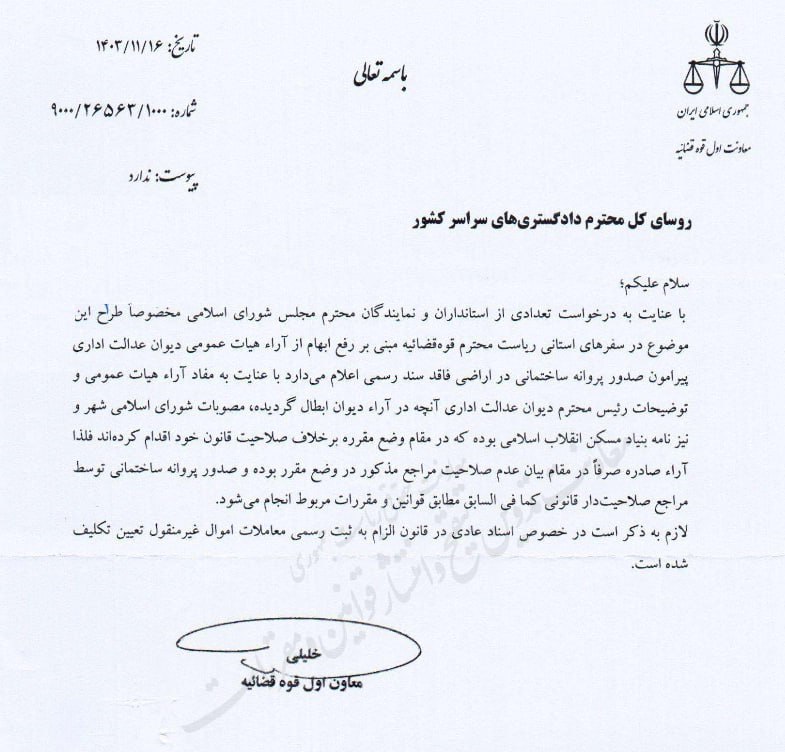 جمهوری اسلامی ایران
معاونت اول قوه قضائیه
باسمه تعالی
تاریخ: ۱۴۰۳/۱۱/۱۶
شماره: ۹۰۰۰/۲۶۵۶۳/۱۰۰۰
پیوست: ندارد
روسای کل محترم دادگستری‌های سراسر کشور
سلام علیکم؛
با عنایت به درخواست تعدادی از استانداران و نمایندگان محترم مجلس شورای اسلامی مخصوصاً طراح این
موضوع در سفرهای استانی ریاست محترم قوه‌قضائیه مبنی بر رفع ابهام از آراء هیات عمومی دیوان عدالت اداری
پیرامون صدور پروانه ساختمانی در اراضی فاقد سند رسمی اعلام می‌دارد با عنایت به مفاد آراء هیات عمومی و
توضیحات رئیس محترم دیوان عدالت اداری آنچه در آراء دیوان ابطال گردیده، مصوبات شورای اسلامی شهر و
نیز نامه بنیاد مسکن انقلاب اسلامی بوده که در مقام وضع مقرره برخلاف صلاحیت قانون خود اقدام کرده‌اند فلذا
آراء صادره صرفاً در مقام بیان عدم صلاحیت مراجع مذکور در وضع مقرر بوده و صدور پروانه ساختمانی توسط
مراجع صلاحیت‌دار قانونی کما فی السابق مطابق قوانین و مقررات مربوط انجام می‌شود.
لازم به ذکر است در خصوص اسناد عادی در قانون الزام به ثبت رسمی معاملات اموال غیرمنقول تعیین تکلیف
شده است.
خلیلی
معاون اول قوه قضائیه
معاونت تدوین، تنقیح و انتشار قوانین و مقررات